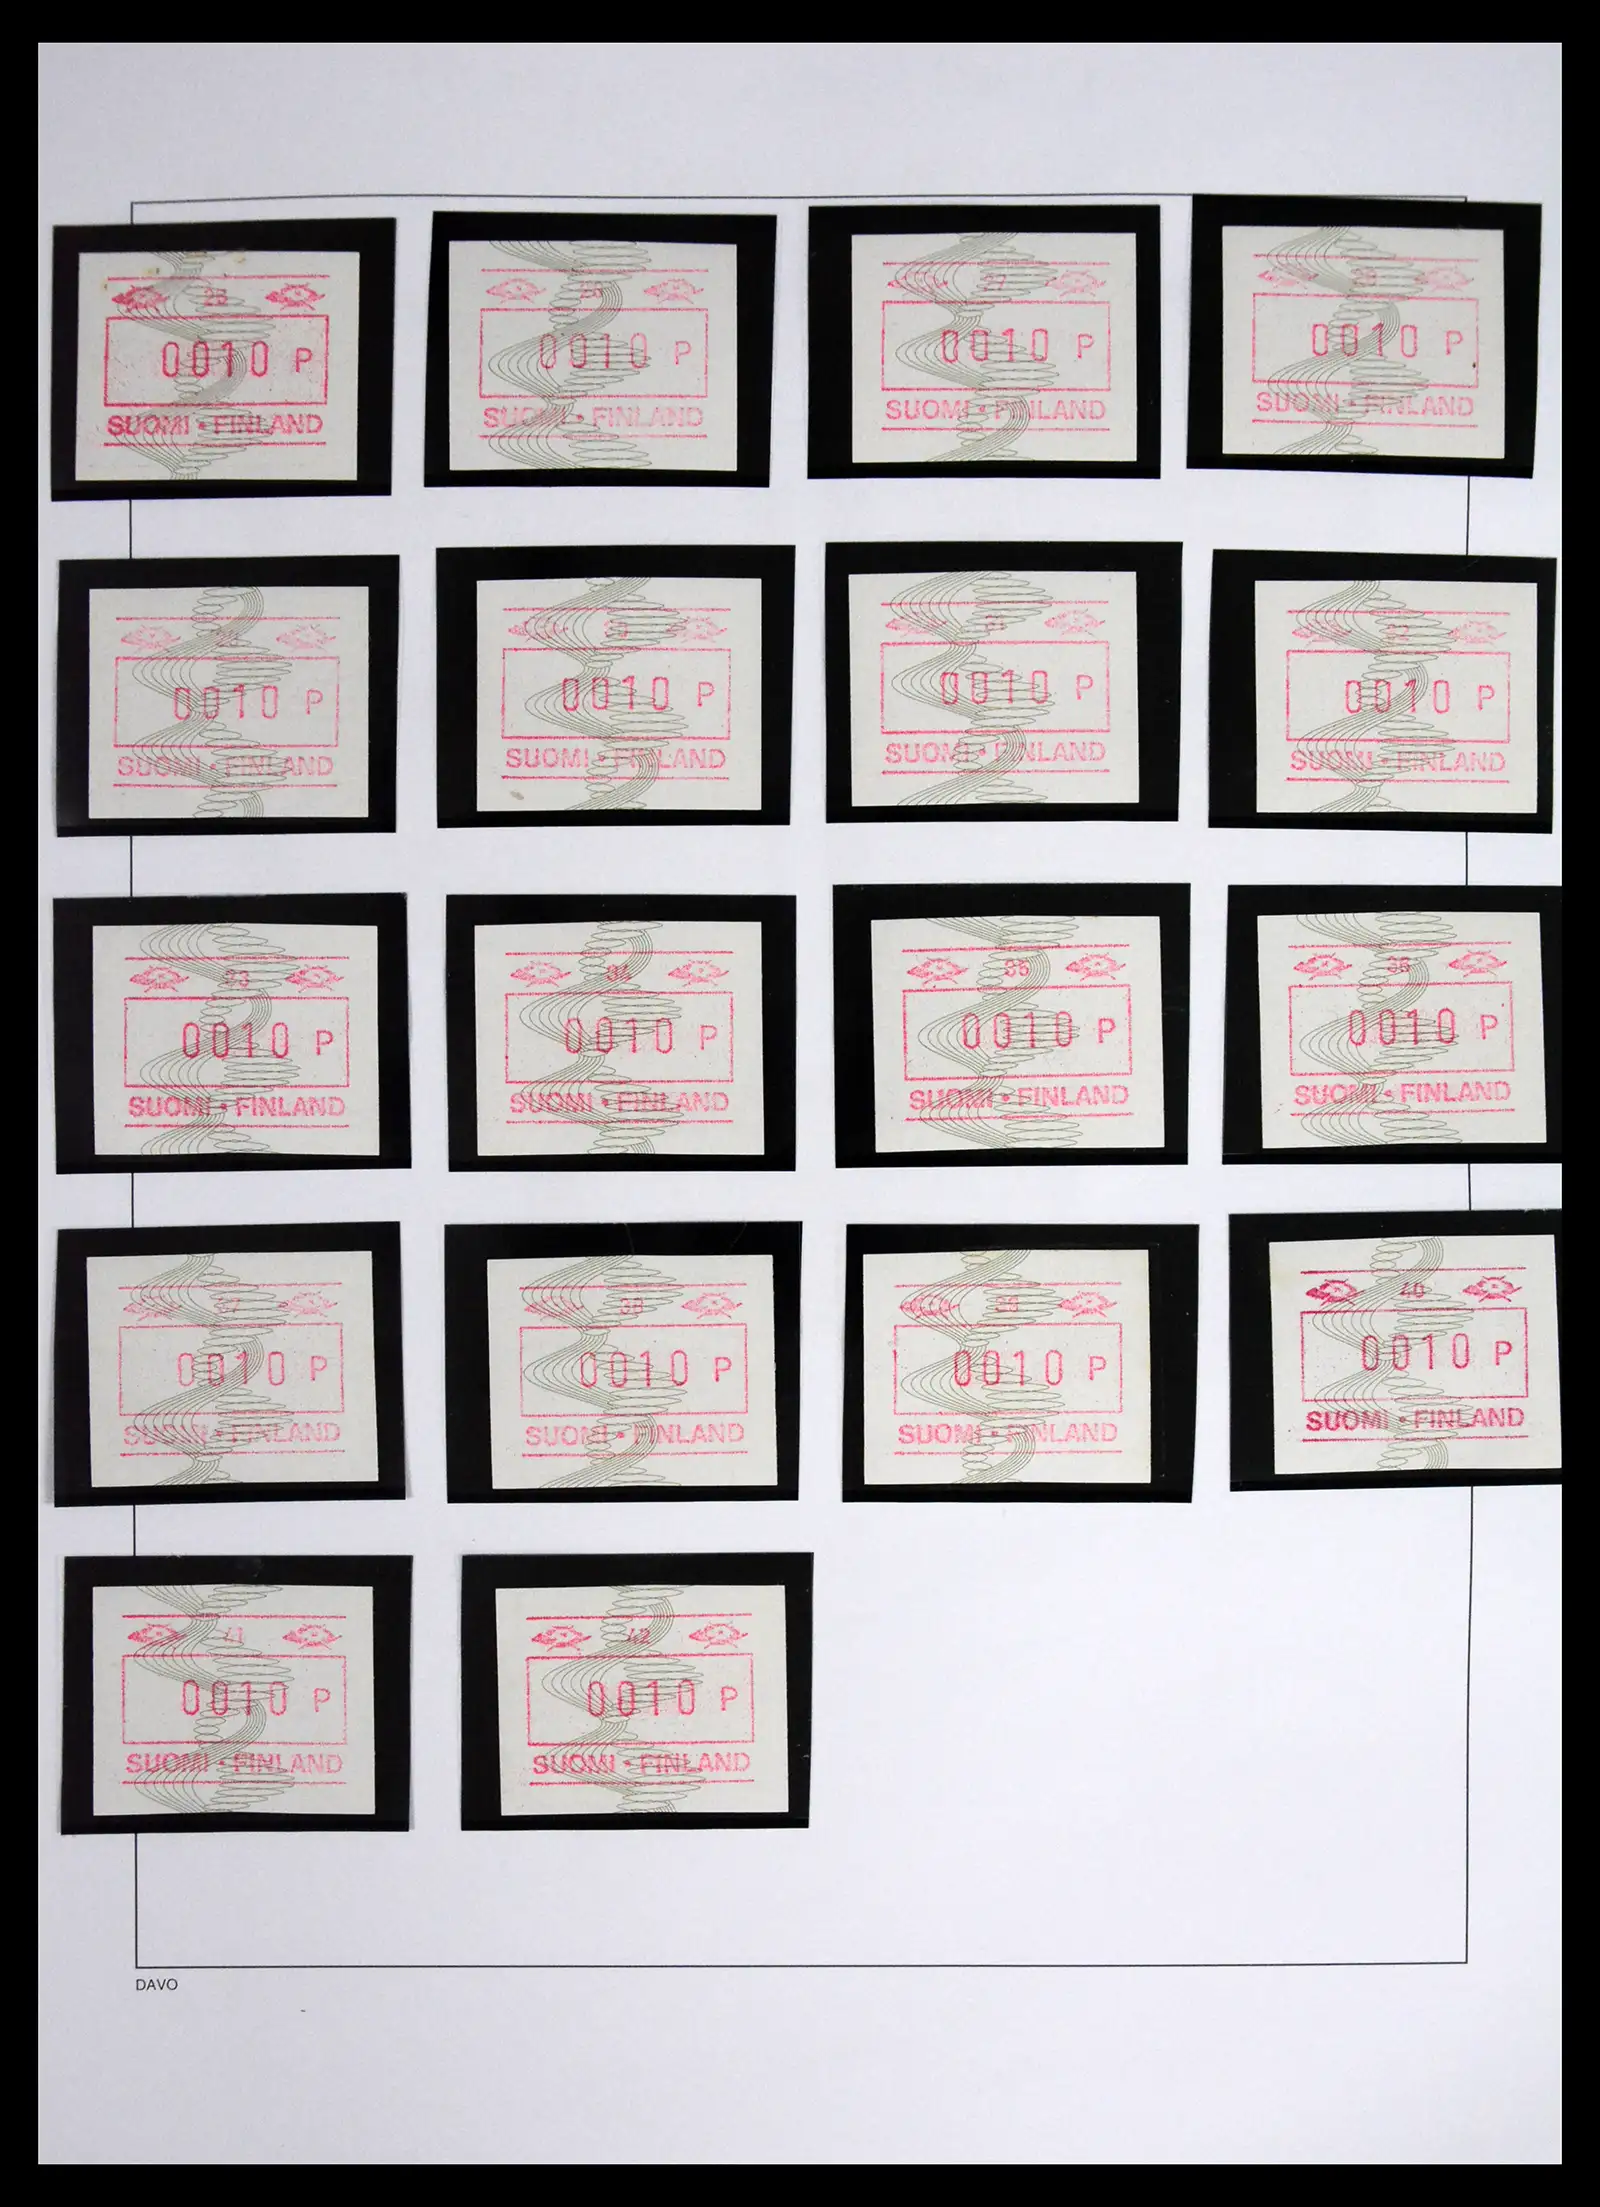 0010 P
SUOMI • FINLAND
0010 P
SUOMI • FINLAND
27
0010 P
SUOMI • FINLAND
0010 P
SUOMI • FINLAND
0010 P
SUOMI • FINLAND
0010 P
SUOMI • FINLAND
0010 P
SUOMI • FINLAND
32
0010 P
SUOMI • FINLAND
33
0010 P
SUOMI • FINLAND
34
0010 P
SUOMI • FINLAND
35
0010 P
SUOMI • FINLAND
36
0010 P
SUOMI • FINLAND
37
0010 P
SUOMI • FINLAND
38
0010 P
SUOMI • FINLAND
0010 P
SUOMI • FINLAND
40
0010 P
SUOMI • FINLAND
41
0010 P
SUOMI • FINLAND
42
0010 P
SUOMI • FINLAND
DAVO